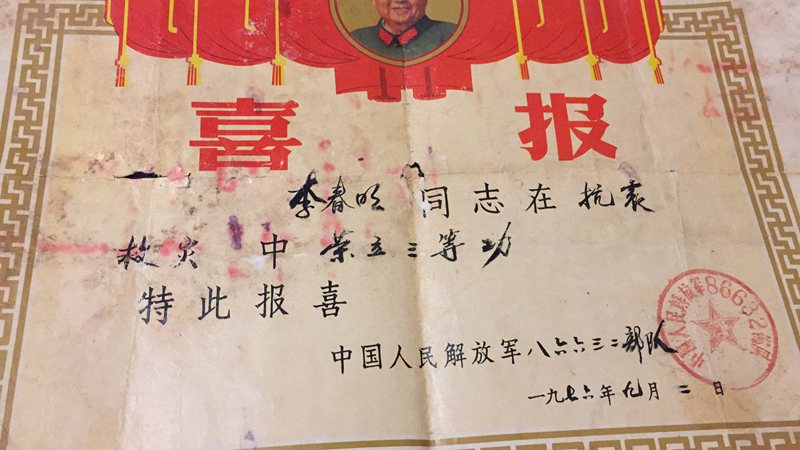 喜报
李春明同志在抗震
救灾中荣立三等功
特此报喜
中国人民解放军八六六三二部队
一九七六年九月二日
中国人民解放军86632部队